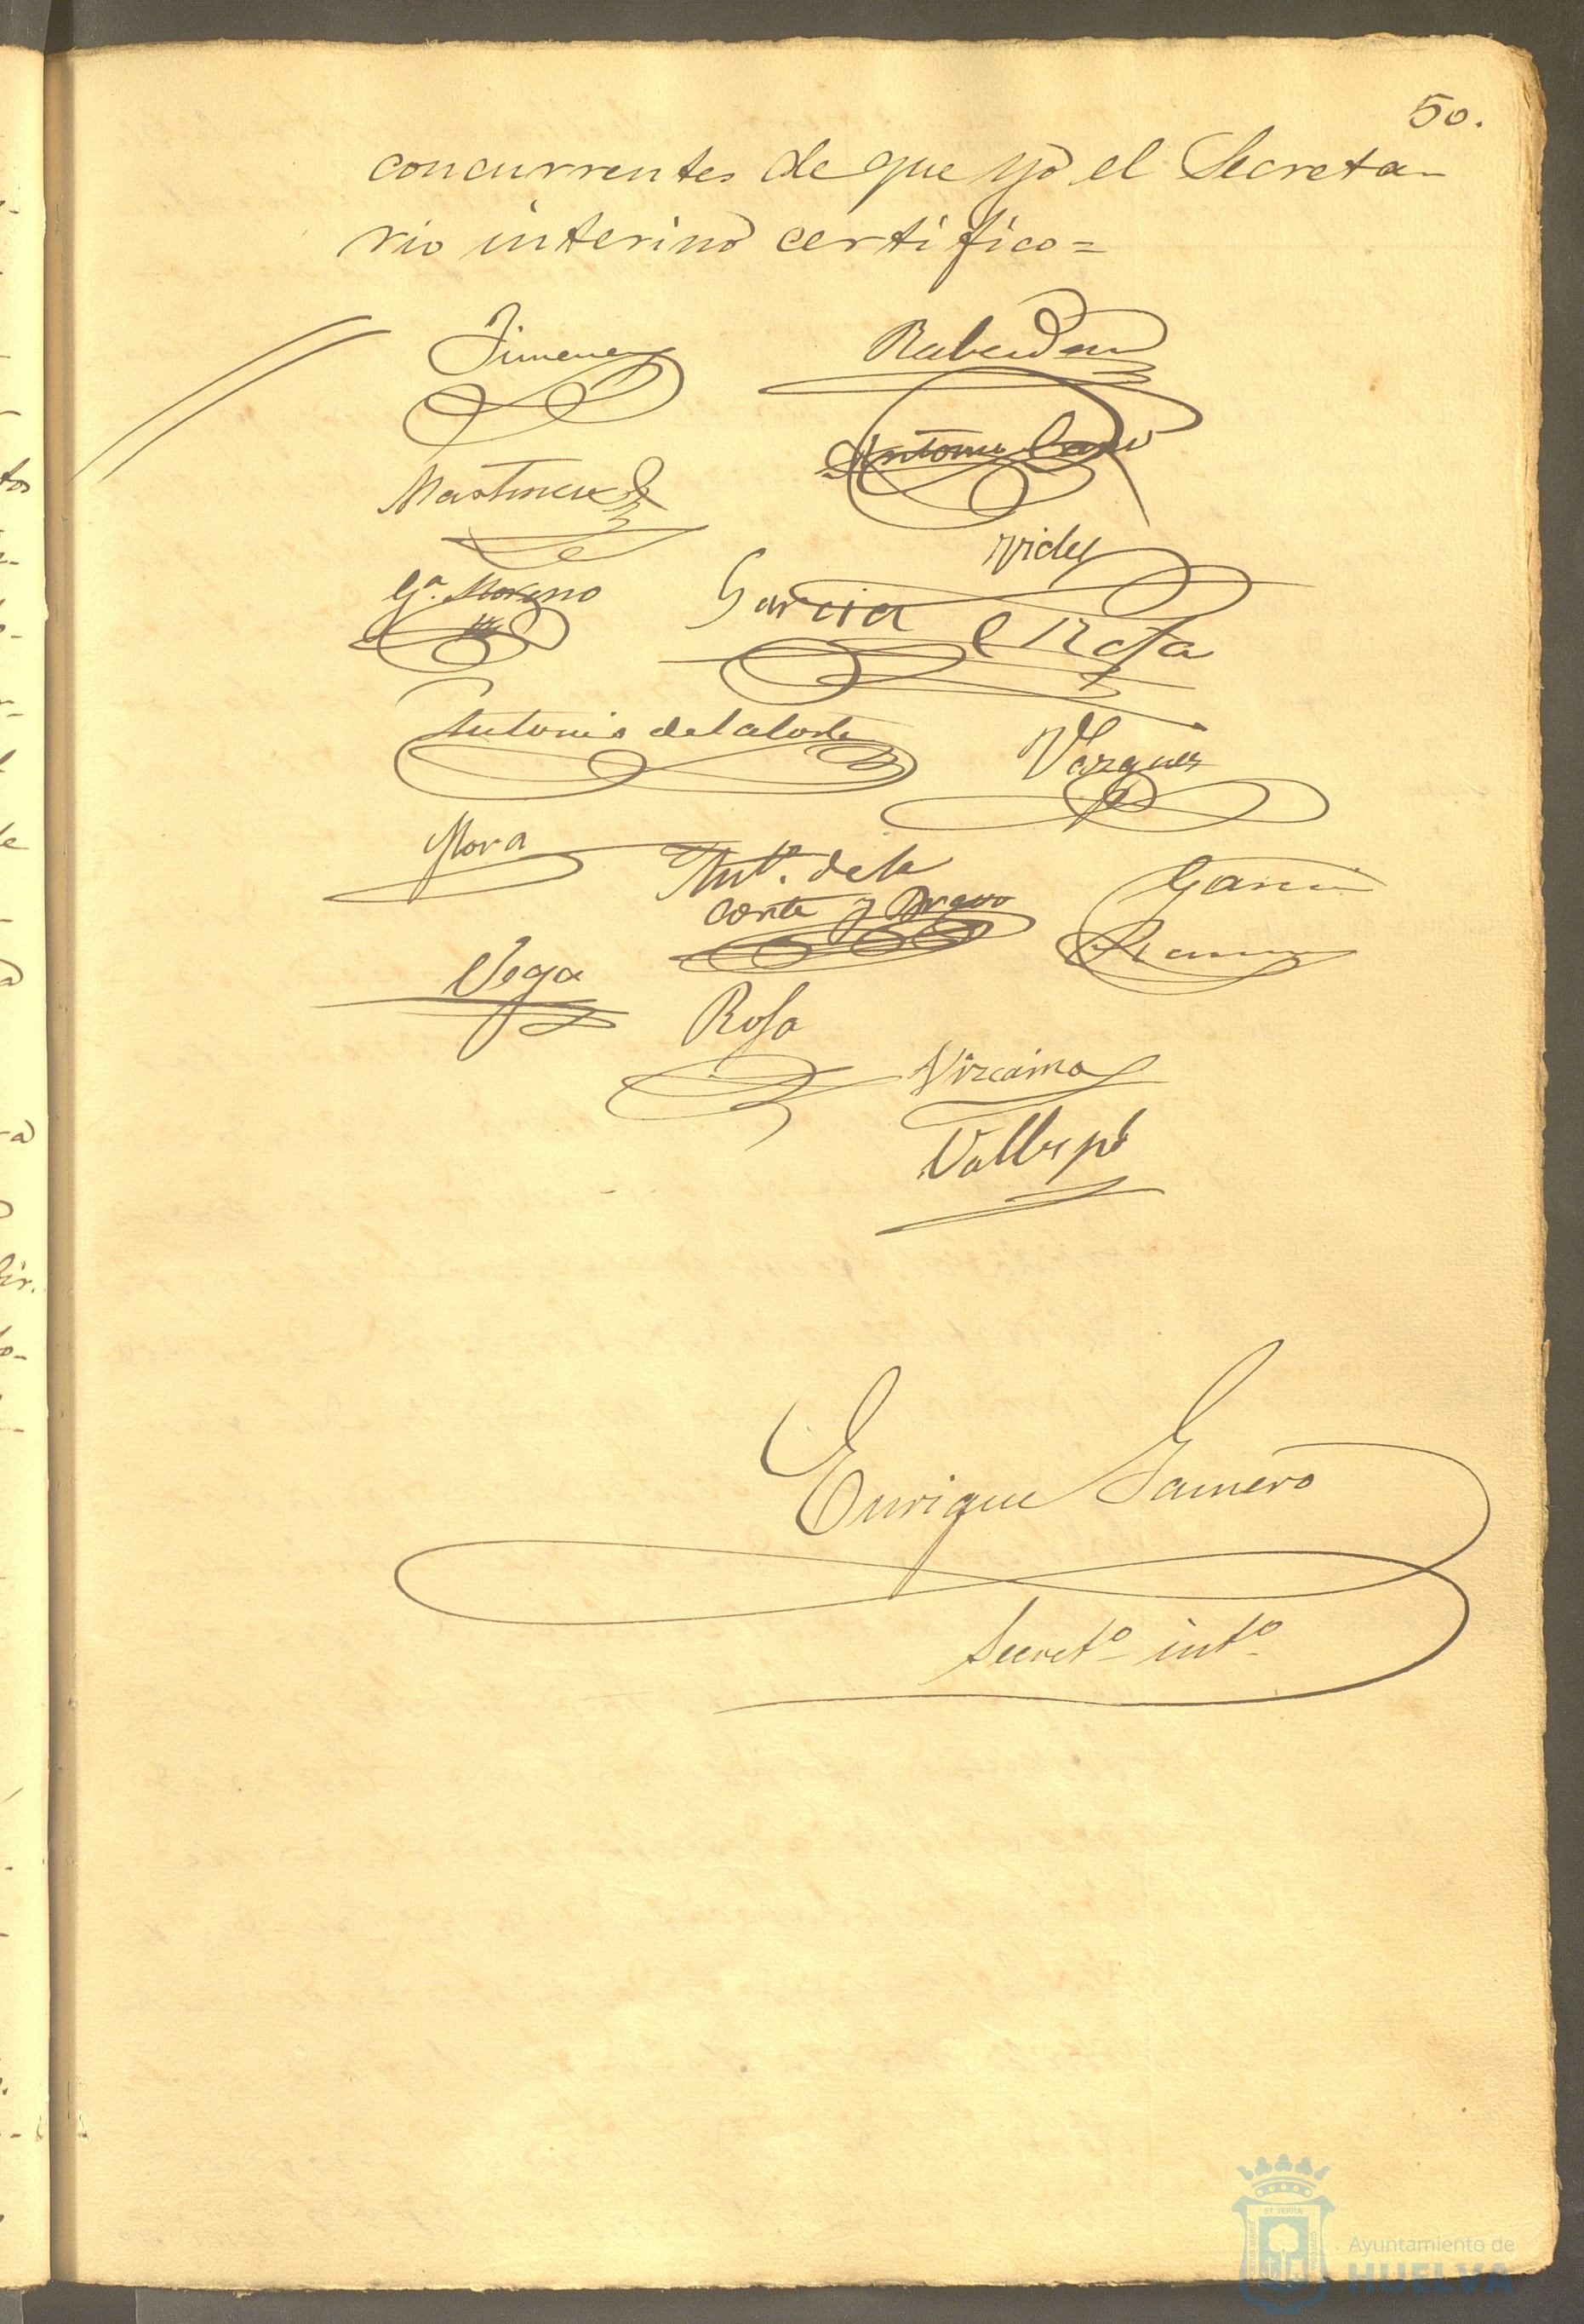 50.
concurrentes de que yo el Secreta-
rio interino certifico=
Jimenez
Martinez
Antonio
Vides
Ga. Moreno
Garcia e Rosa
Antonio de la Corte
Vazquez
Mora
Anto. de la
Corte y Bravo
Garcia
Ramos
Vega
Rosa
Vizcaino
Enrique Gamero
Secreto into
Ayuntamiento de
HUELVA